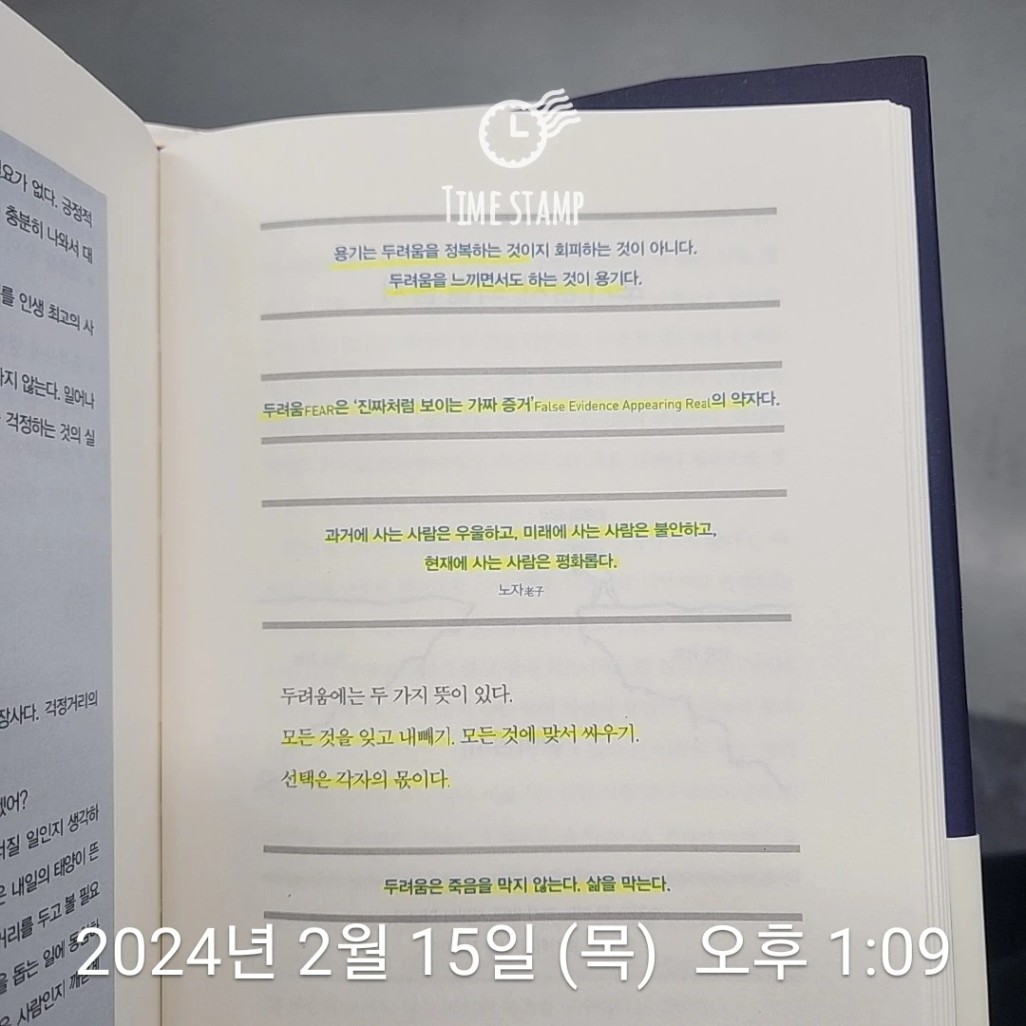 TIME STAMP
요가 없다. 긍정적
충분히 나와서 대
를 인생 최고의 사
지 않는다. 일어나
걱정하는 것의 실
장사다. 걱정거리의
어?
질 일인지 생각하
내일의 태양이 뜬
리를 두고 볼 필요
돕는 일에 동참하
사람인지
용기는 두려움을 정복하는 것이지 회피하는 것이 아니다.
두려움을 느끼면서도 하는 것이 용기다.
두려움FEAR은 ‘진짜처럼 보이는 가짜 증거’False Evidence Appearing Real의 약자다.
과거에 사는 사람은 우울하고, 미래에 사는 사람은 불안하고,
현재에 사는 사람은 평화롭다.
노자老子
두려움에는 두 가지 뜻이 있다.
모든 것을 잊고 내빼기. 모든 것에 맞서 싸우기.
선택은 각자의 몫이다.
두려움은 죽음을 막지 않는다. 삶을 막는다.
2024년 2월 15일 (목) 오후 1:09